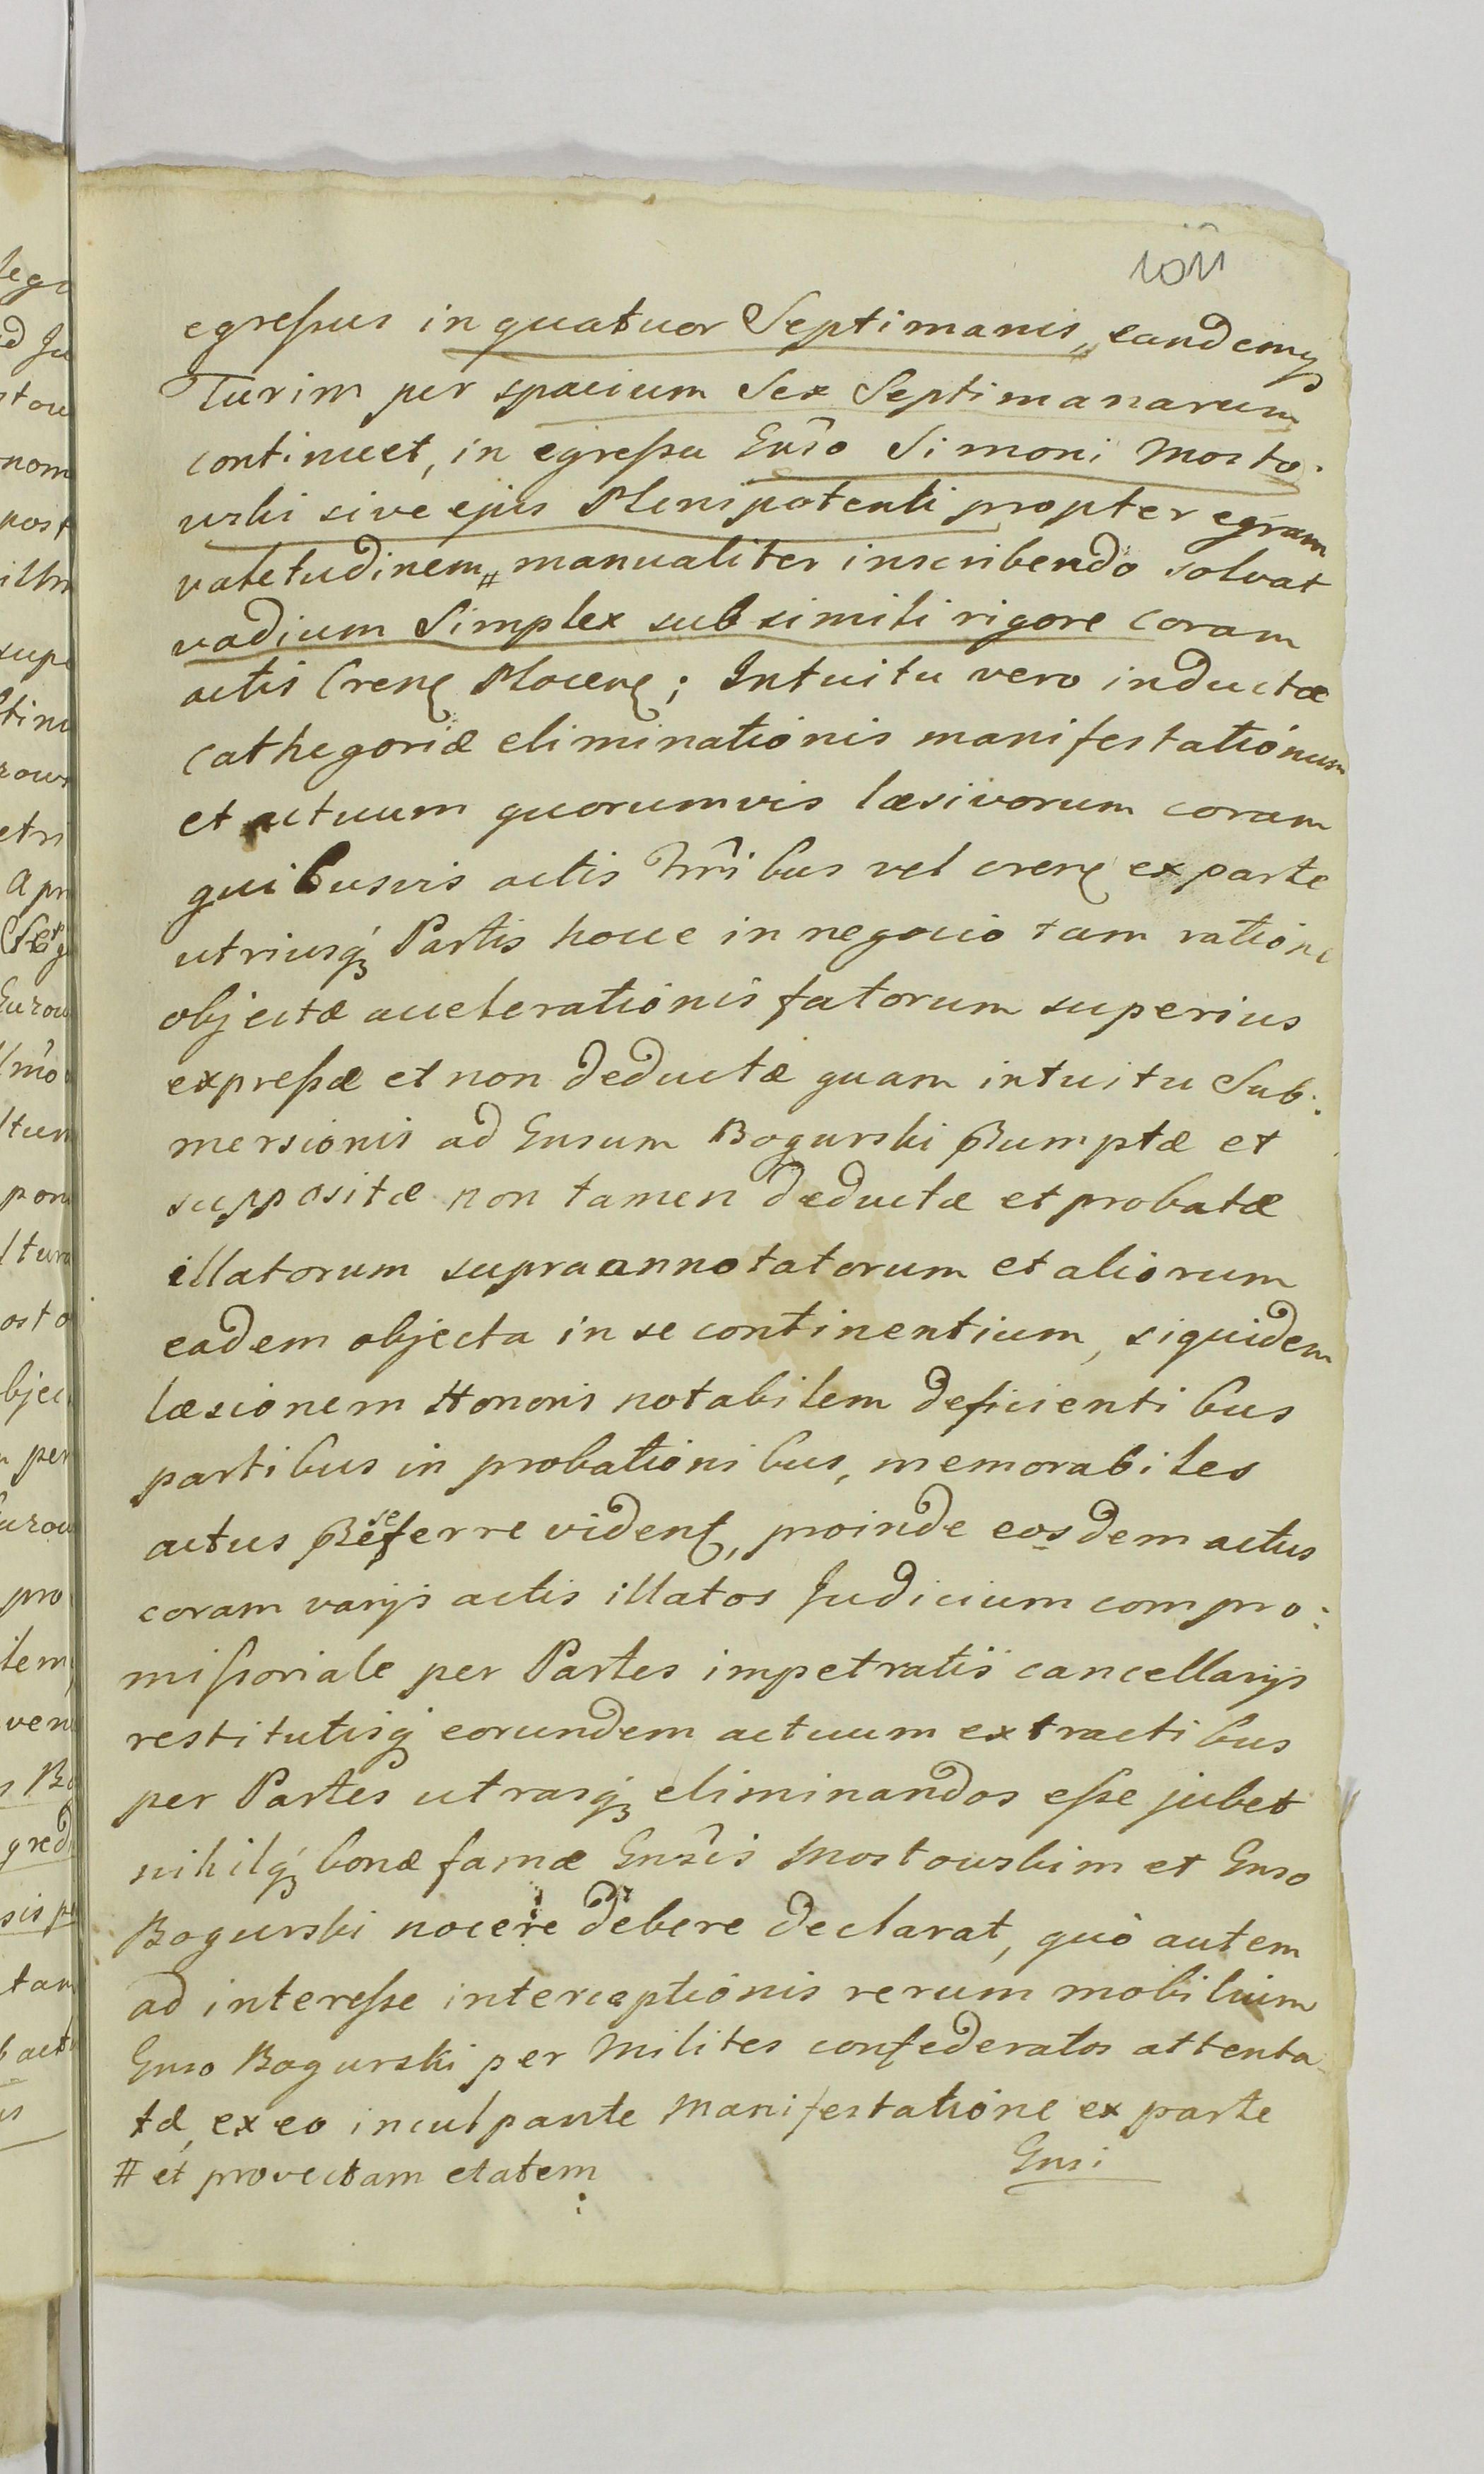 egressus in quatuor Septimanis, eandemq
Turim per spacium Sex Septimanarum
continuet, in egressu Gnso Simoni Mosto:
wski sive ejus Plenipotenti propter egram
valetudinem # manualiter inscribendo solvat
vadium Simplex sub simili rigore coram
actis Cren Plocen; Intuitu vero inductæ
cathegoriæ eliminationis manifestationum
et actuum quorumvis læsivorum coram
quibusvis actis Trribus vel cren ex parte
utriusq Partis hocce in negocio tam ratione
objectæ accelerationis fatorum superius
expressæ et non deductæ quam intuitu Sub:
mersionis ad Gnsum Bogurski Præsumptæ et
suppositæ non tamen deductæ et probatæ
illatorum supraannotatorum et aliorum
eadem objecta in se continentium, siquidem
læsionem Honoris notabilem deficientibus
partibus in probationibus, memorabiles
actus præ se ferre vident, proinde eosdem actus
coram varijs actis illatos Judicium compro:
missoriale per Partes impetratis cancellarijs
restitutisq eorundem actuum extractibus
per Partes utrasq eliminandos esse jubet
nihilq bonæ famæ Gnsis Mostowskim et Gnso
Bogurski nocere debere declarat, quò autem
ad interesse interceptionis rerum mobilium
Gnso Bogurski per Milites confederatos attenta
tæ, ex eo inculpante Manifestatione ex parte
Gnsi
# et provectam etatem